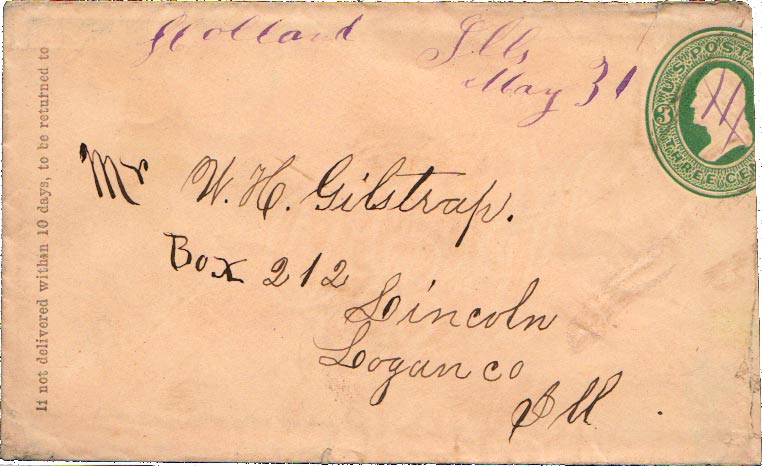 Holland Ills
May 31
U.S. POST
3
THREE CE
Mr W. H. Gilstrap.
Box 212
Lincoln
Logan co
Ill.
If not delivered within 10 days, to be returned to